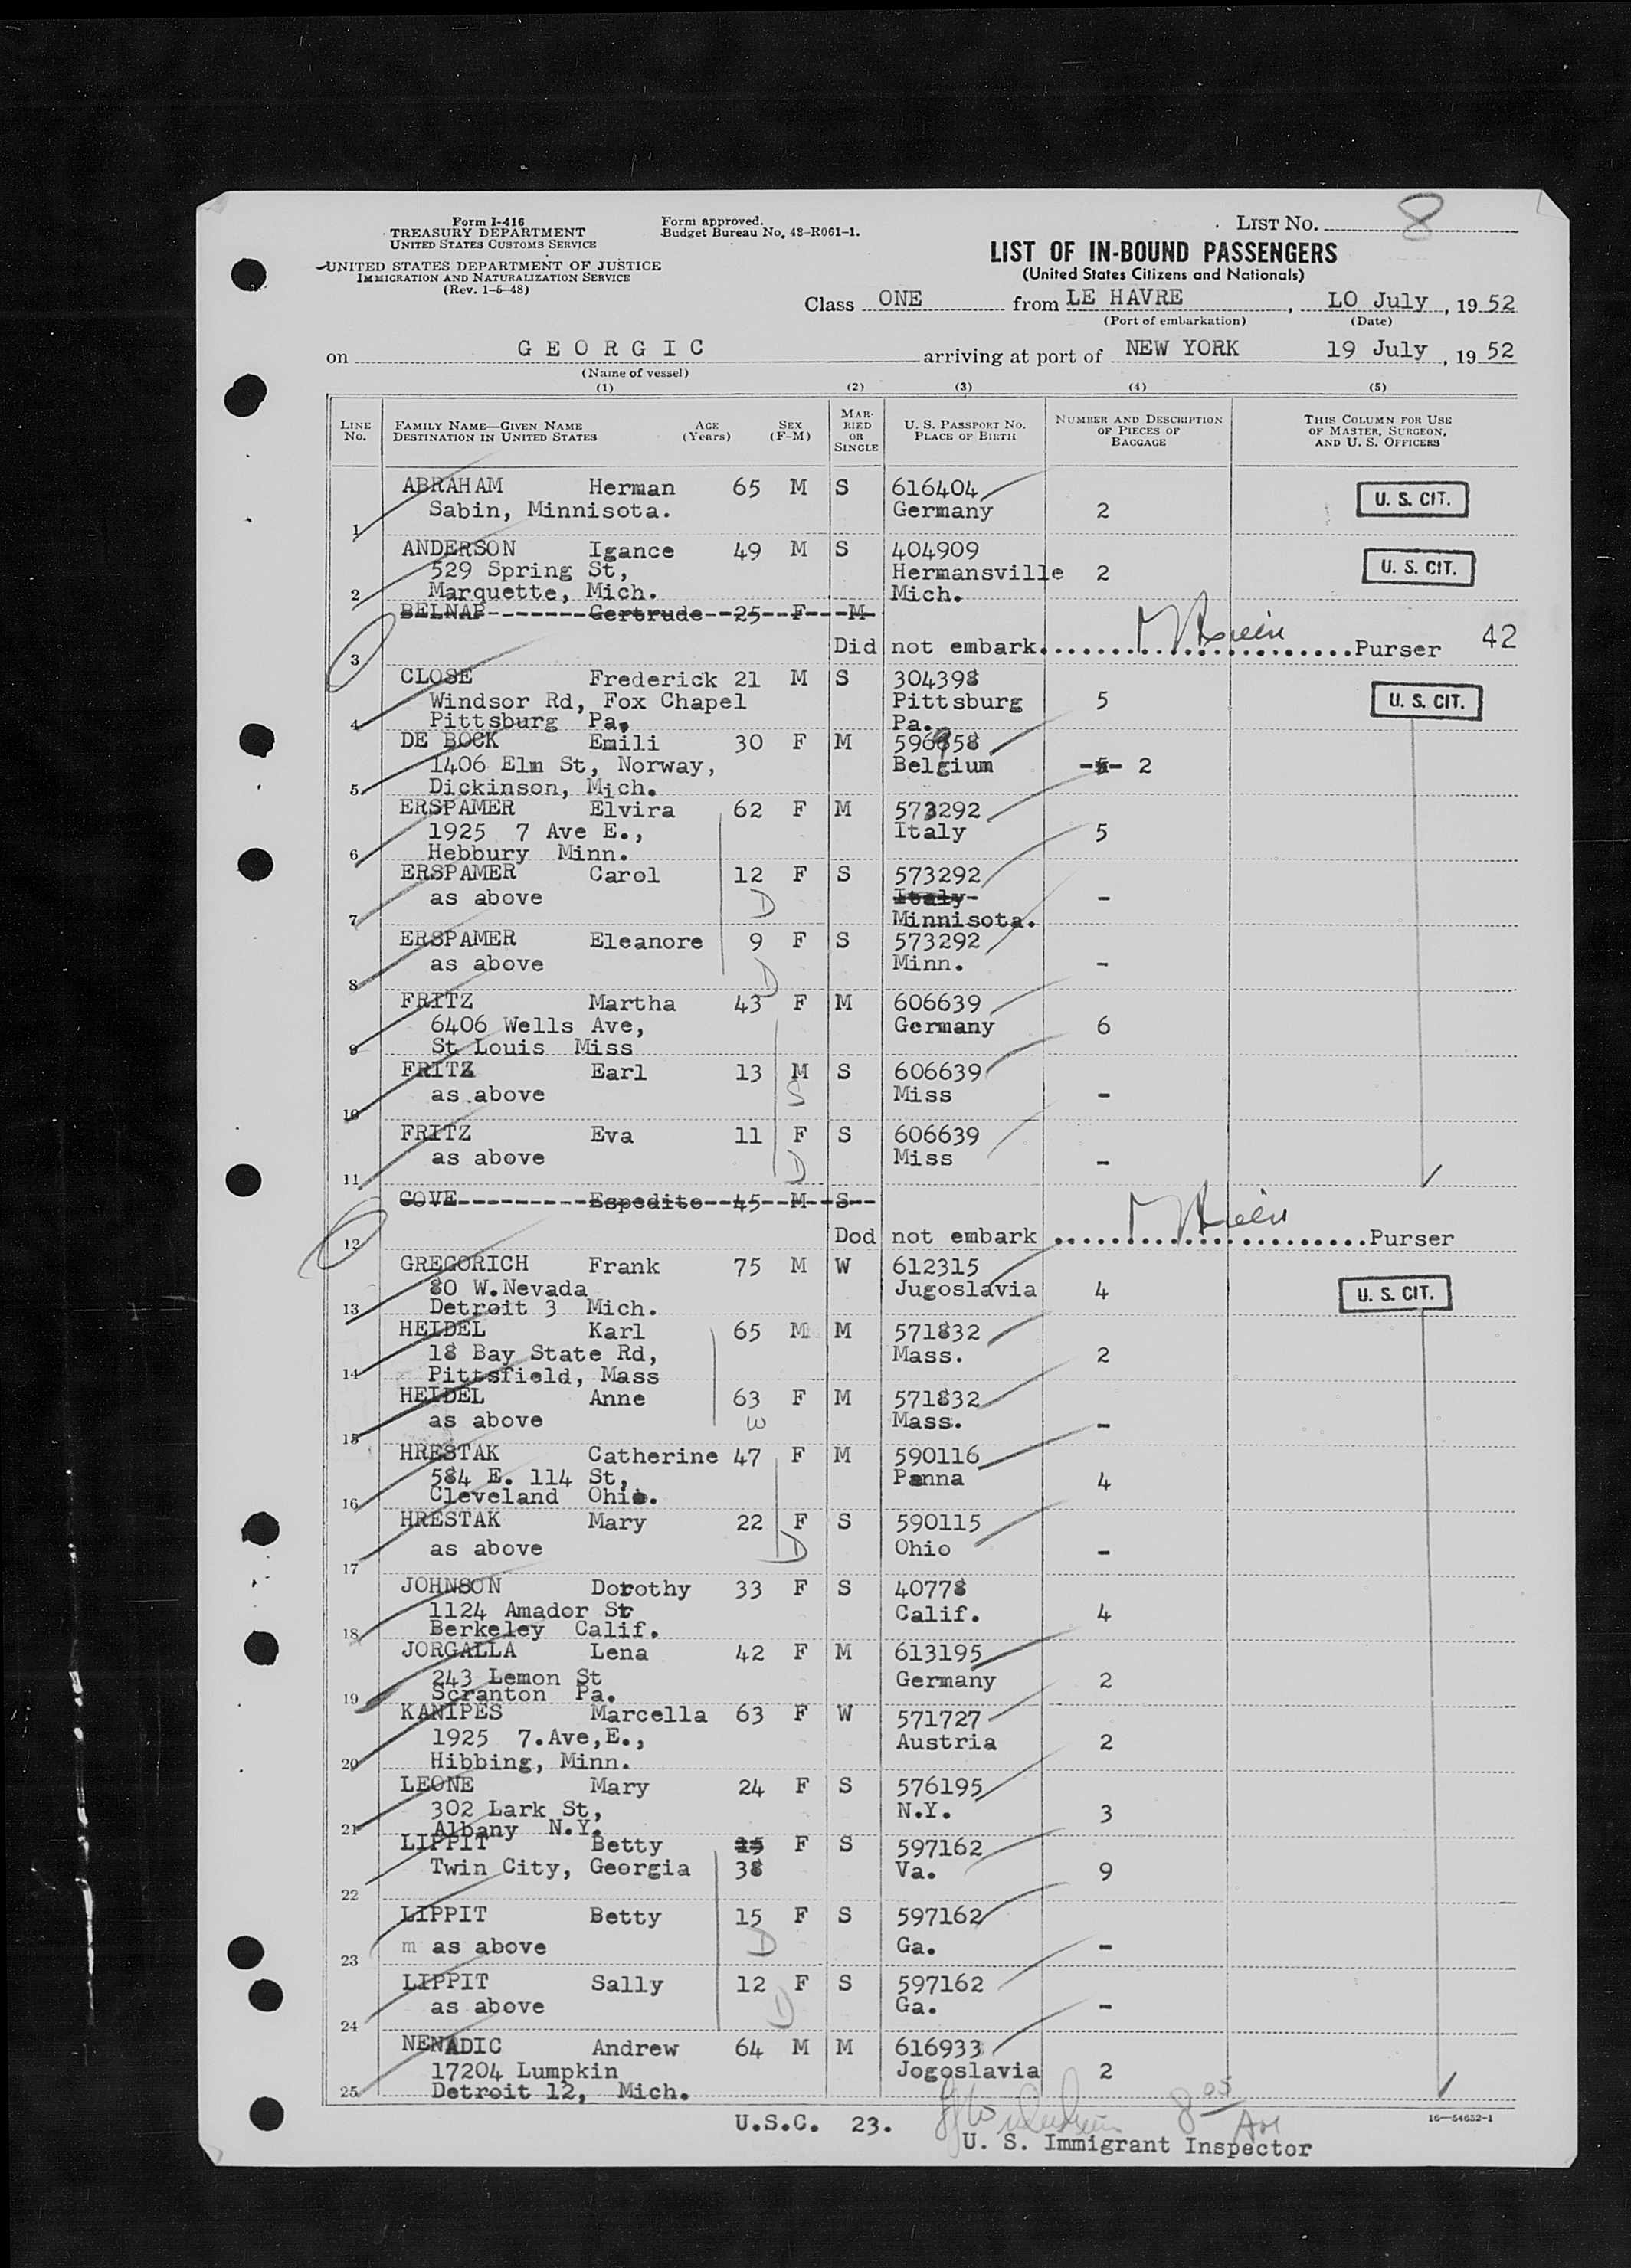 Form I-416
TREASURY DEPARTMENT
UNITED STATES CUSTOMS SERVICE
UNITED STATES DEPARTMENT OF JUSTICE
IMMIGRATION AND NATURALIZATION SERVICE
(Rev. 1-5-48)
Form approved.
Budget Bureau No. 48-R061-1.
LIST NO. 8
LIST OF IN-BOUND PASSENGERS
(United States Citizens and Nationals)
Class ONE from LE HAVRE, LO July, 1952
(Port of embarkation) (Date)
on GEORGIC arriving at port of NEW YORK 19 July, 1952
(Name of vessel)
(1) (2) (3) (4) (5)
LINE No. FAMILY NAME—GIVEN NAME DESTINATION IN UNITED STATES AGE (Years) SEX (F-M) MARRIED OR SINGLE U. S. PASSPORT NO. PLACE OF BIRTH NUMBER AND DESCRIPTION OF PIECES OF BAGGAGE THIS COLUMN FOR USE OF MASTER, SURGEON, AND U. S. OFFICERS
ABRAHAM Herman 65 M S 616404
1 Sabin, Minnisota. Germany 2 U. S. CIT.
ANDERSON Igance 49 M S 404909
529 Spring St, Hermansville 2 U. S. CIT.
2 Marquette, Mich. Mich.
BELNAP Gertrude 25 F M
3 Did not embark Purser 42
CLOSE Frederick 21 M S 304398
Windsor Rd, Fox Chapel Pittsburg 5 U. S. CIT.
4 Pittsburg Pa, Pa.
DE BOCK Emili 30 F M 596958
1406 Elm St, Norway, Belgium -5- 2
5 Dickinson, Mich.
ERSPAMER Elvira 62 F M 573292
1925 7 Ave E., Italy 5
6 Hebbury Minn.
ERSPAMER Carol 12 F S 573292
as above D Italy -
7 Minnisota.
ERSPAMER Eleanore 9 F S 573292
8 as above D Minn. -
FRITZ Martha 43 F M 606639
6406 Wells Ave, Germany 6
9 St Louis Miss
FRITZ Earl 13 M S 606639
10 as above S Miss -
FRITZ Eva 11 F S 606639
11 as above D Miss -
GOVE Espedito 45 M S
12 Dod not embark Purser
GREGORICH Frank 75 M W 612315
80 W.Nevada Jugoslavia 4 U. S. CIT.
13 Detroit 3 Mich.
HEIDEL Karl 65 M M 571832
18 Bay State Rd, Mass. 2
14 Pittsfield, Mass
HEIDEL Anne 63 F M 571832
15 as above W Mass. -
HRESTAK Catherine 47 F M 590116
584 E. 114 St, Penna 4
16 Cleveland Ohio.
HRESTAK Mary 22 F S 590115
17 as above D Ohio -
JOHNSON Dorothy 33 F S 40778
1124 Amador St Calif. 4
18 Berkeley Calif.
JORGALLA Lena 42 F M 613195
243 Lemon St Germany 2
19 Scranton Pa.
KANIPES Marcella 63 F W 571727
1925 7.Ave,E., Austria 2
20 Hibbing, Minn.
LEONE Mary 24 F S 576195
302 Lark St, N.Y. 3
21 Albany N.Y.
LIPPIT Betty 15 F S 597162
22 Twin City, Georgia 38 Va. 9
LIPPIT Betty 15 F S 597162
23 m as above D Ga. -
LIPPIT Sally 12 F S 597162
24 as above D Ga. -
NENADIC Andrew 64 M M 616933
17204 Lumpkin Jogoslavia 2
25 Detroit 12, Mich.
U.S.C. 23. 8 05 AM 16—54652-1
U. S. Immigrant Inspector